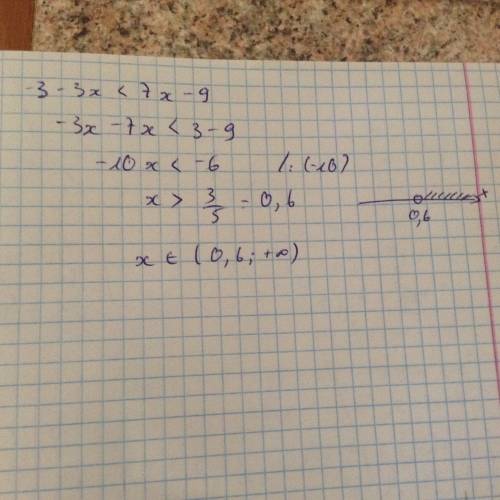 -3 - 3x < 7x - 9
-3x - 7x < 3 - 9
-10x < -6 /: (-10)
x > 3/5 = 0,6
0,6
x
x ∈ (0,6; +∞)